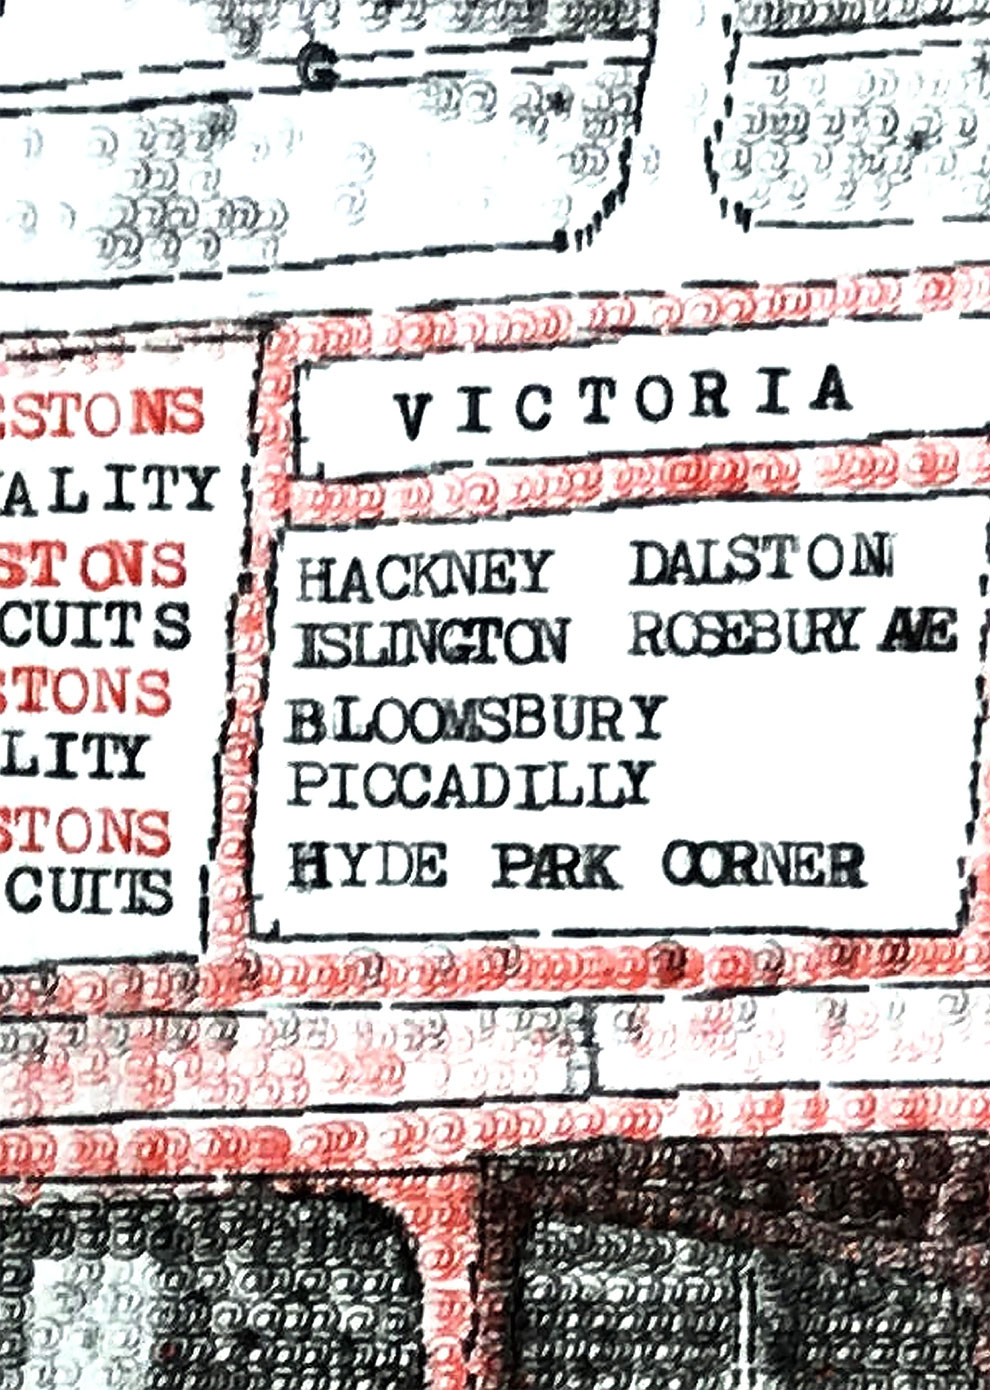 STONS
ALITY
STONS
CUITS
STONS
LITY
STONS
CUITS
VICTORIA
HACKNEY DALSTON
ISLINGTON ROSEBURY AVE
BLOOMSBURY
PICCADILLY
HYDE PARK CORNER